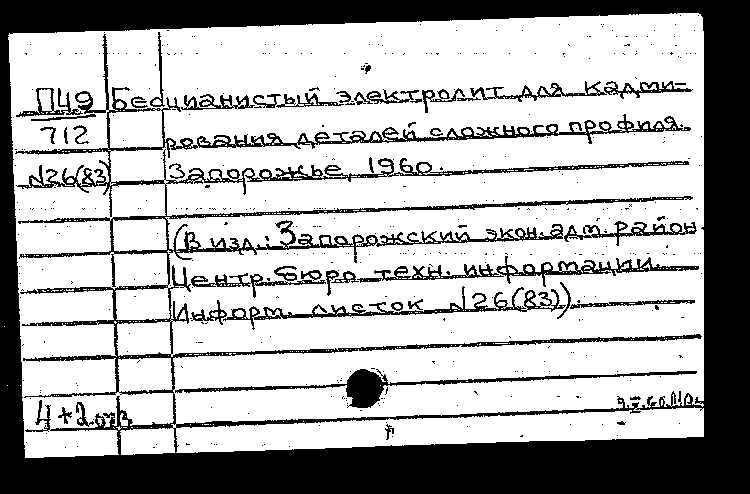 П49 Бесцианистый электролит для кадми-
712 рования деталей сложного профиля.
№26(83) Запорожье, 1960.
(В изд.: Запорожский экон. адм. район.
Центр. бюро техн. информации.
Информ. листок №26(83)).
4+2